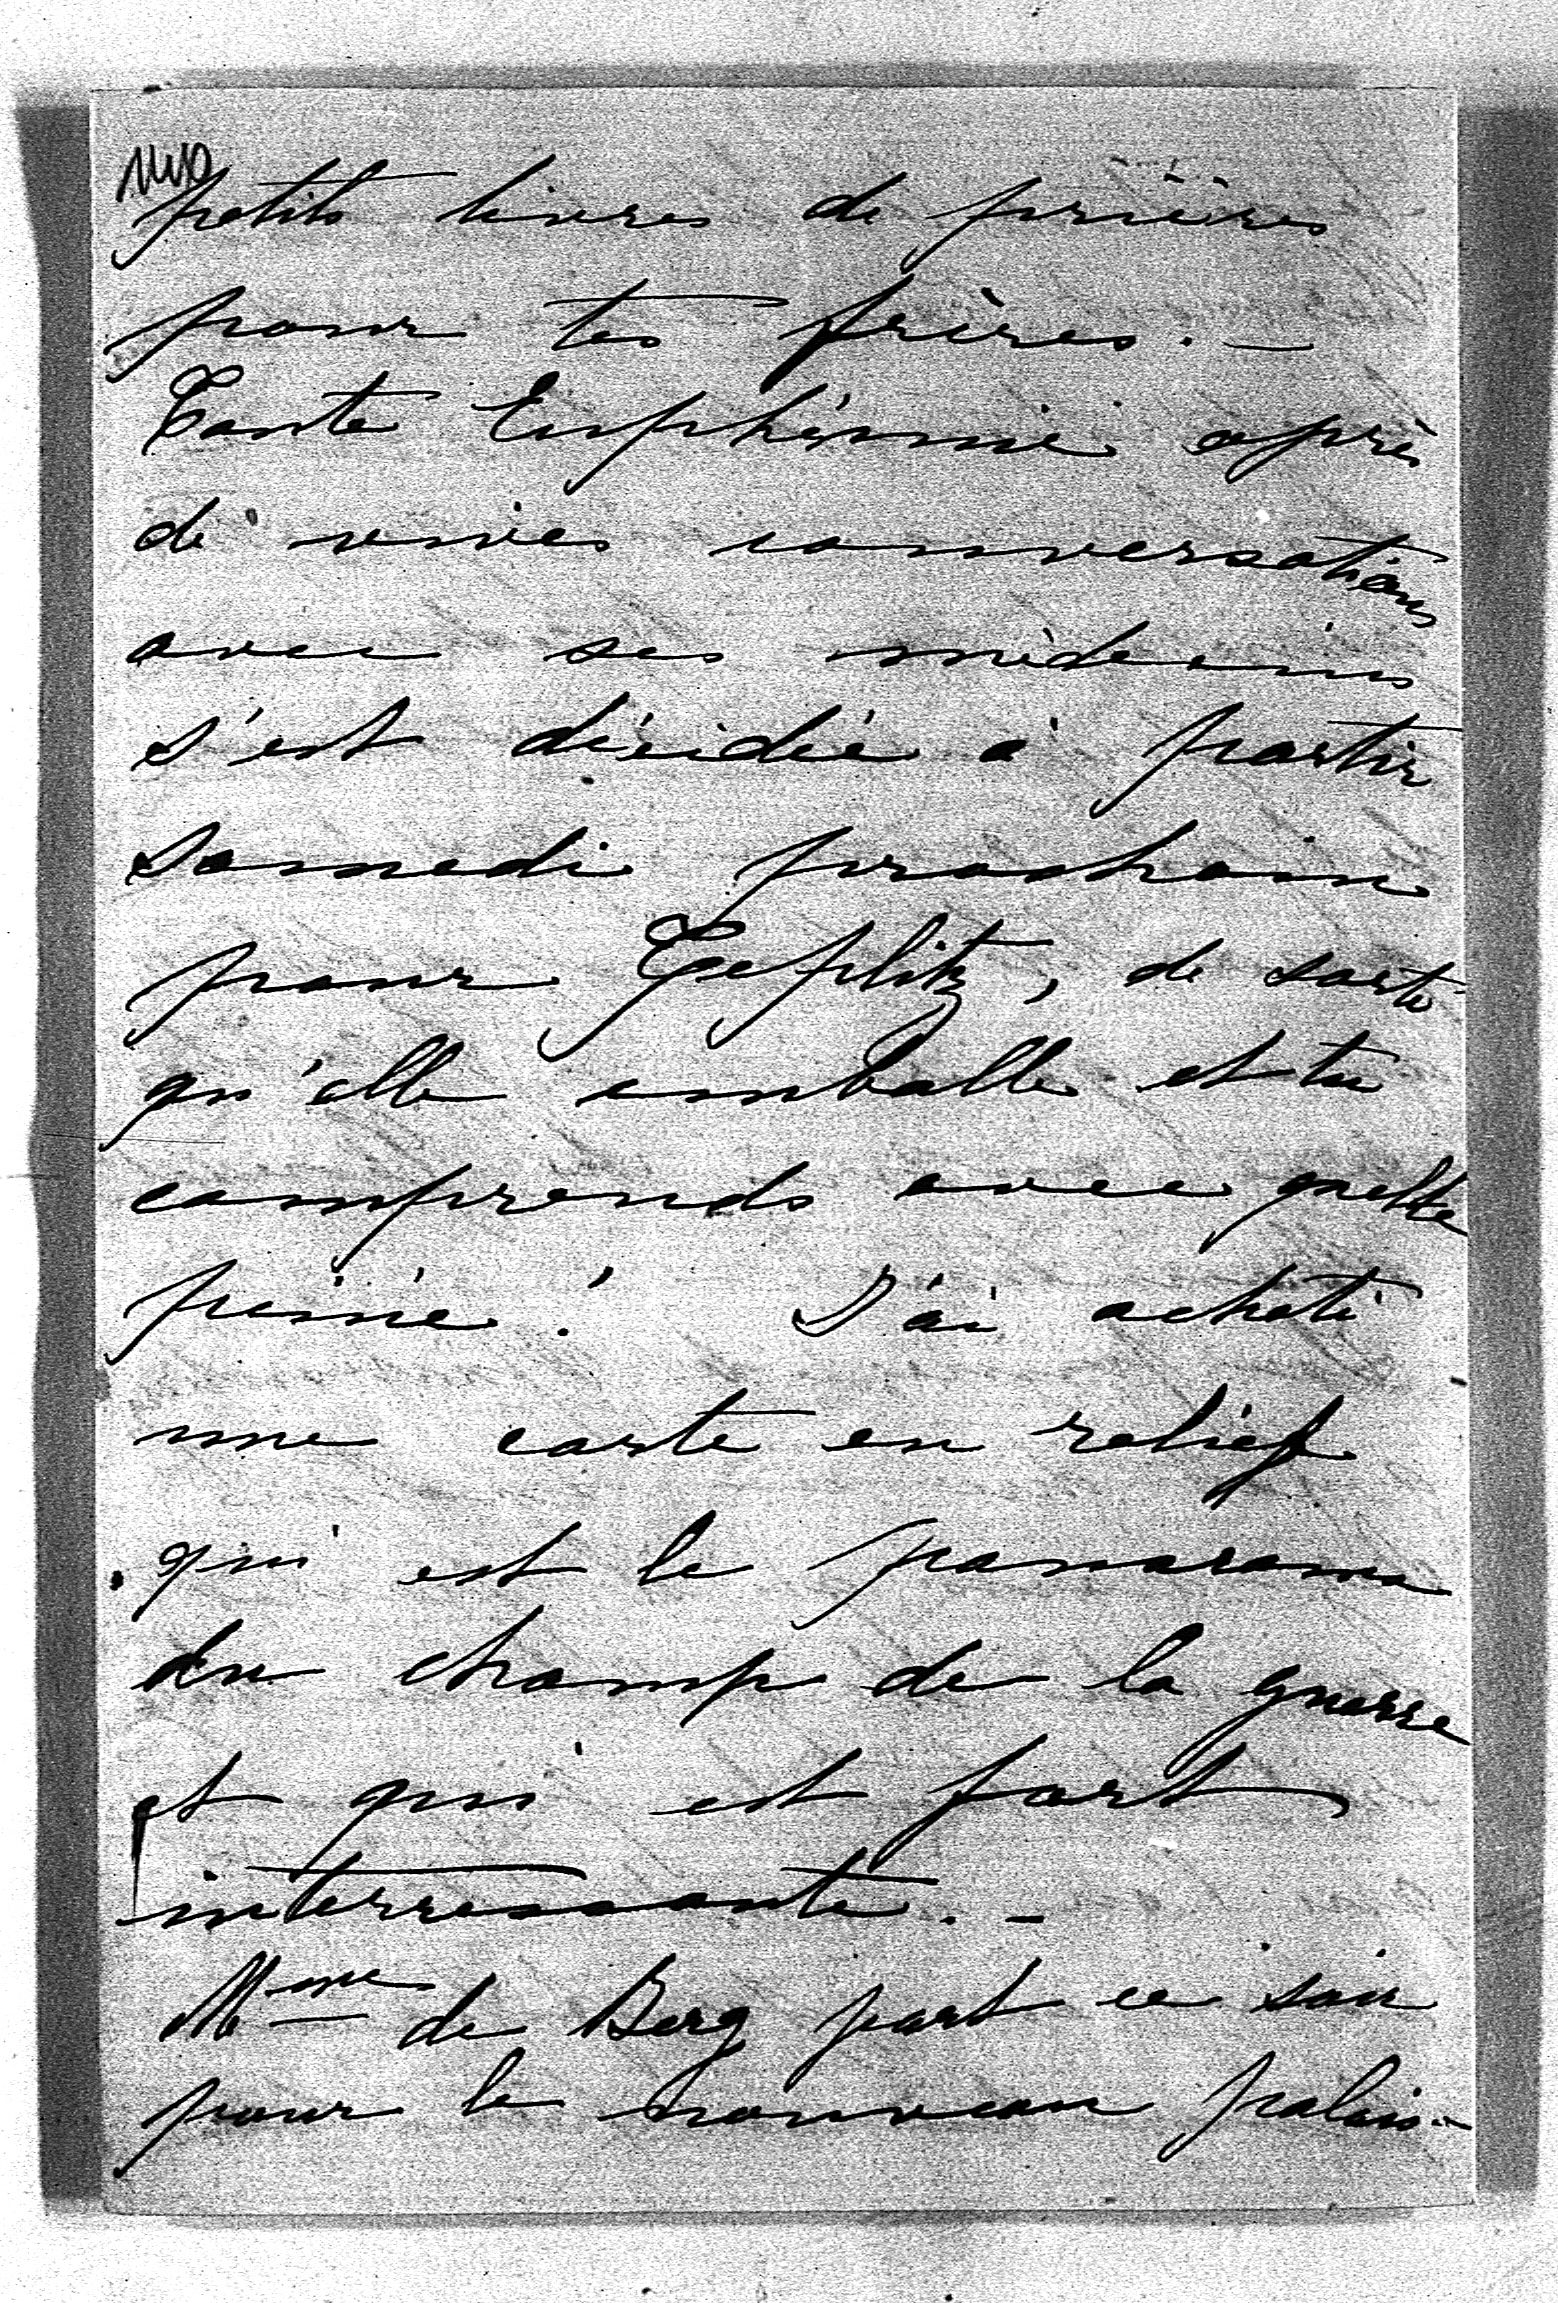 petits livres de prières
pour tes frères. —
Tante Euphémie après
de vives conversations
avec ses médecins
s'est décidée à partir
Samedi prochain
pour Teplitz, de sorte
qu'elle emballe et tu
comprends avec quelle
peine! J'ai acheté
une carte en relief
qui est le panorama
du champ de la guerre
et qui est fort
interressante. —
Mme de Berg part ce soir
pour le nouveau palais —